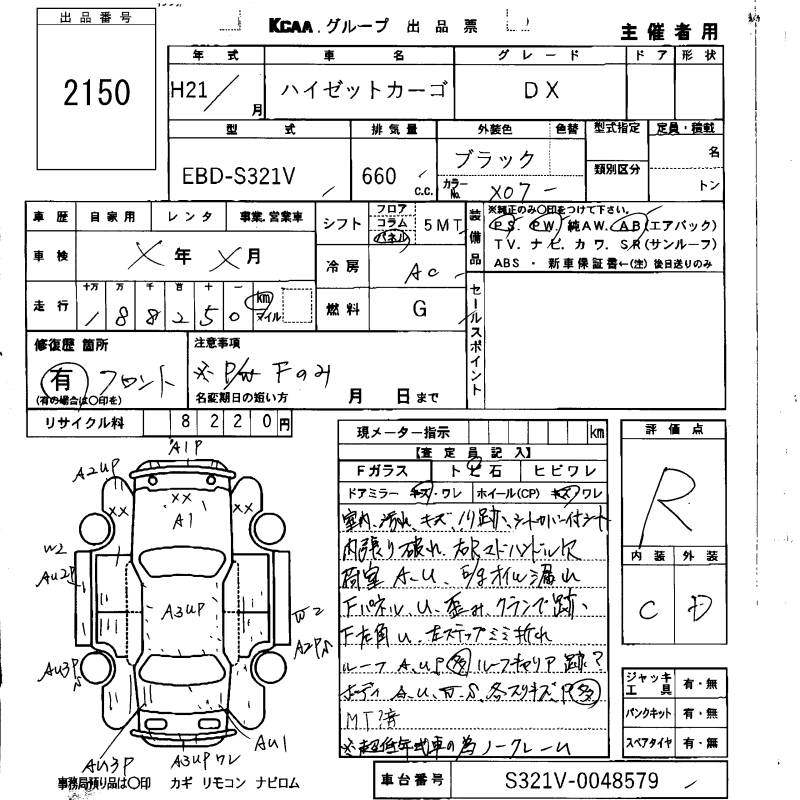 出品番号
2150
KCAA.グループ 出品票
主催者用
年式 車名 グレード ドア 形状
H21/ 月 ハイゼットカーゴ DX
型式 排気量 外装色 色替 型式指定 定員・積載
EBD-S321V 660 c.c. ブラック カラーNo. X07 類別区分 名 トン
車歴 自家用 レンタ 事業.営業車
車検 X年 X月
走行 十万 万 千 百 十 一
1 8 8 2 5 0 km マイル
シフト フロア コラム パネル 5MT
冷房 AC
燃料 G
装備品 ※純正のみ〇印をつけて下さい。
PS. PW. 純AW. AB(エアバック)
TV. ナビ. カワ. SR(サンルーフ)
ABS・新車保証書←(注)後日送りのみ
セールスポイント
修復歴 箇所
有 フロント
(有の場合は〇印を)
注意事項
※P/W Fのみ
名変期日の短い方 月 日まで
リサイクル料 8220円
現メーター指示 km
【査定員記入】
Fガラス トビ石 ヒビワレ
ドアミラー キズ・ワレ ホイール(CP) キズ/ワレ
室内、汚れ、キズ、ノリ跡、シートカバー付シート
内張り破れ、右Rマドハンドル欠
荷室 A.U、オイル漏れ
Fパネル、U、歪み、クランプ跡、
F左角U、左ステップミミ折れ
ルーフ A,UP 多 ルーフキャリア跡?
ボディ A,U,W,S、各スリキズ、P多
MT済
※超低年式車の為ノークレーム
評価点
R
内装 外装
C D
ジャッキ工具 有・無
パンクキット 有・無
スペアタイヤ 有・無
A1P
A2UP
XX
XX
XX
A1
W2
AU2P
A3UP
W2
A2PS
AU3PS
AU1
AU3P
A3UPワレ
事務局預り品は〇印 カギ リモコン ナビロム
車台番号 S321V-0048579